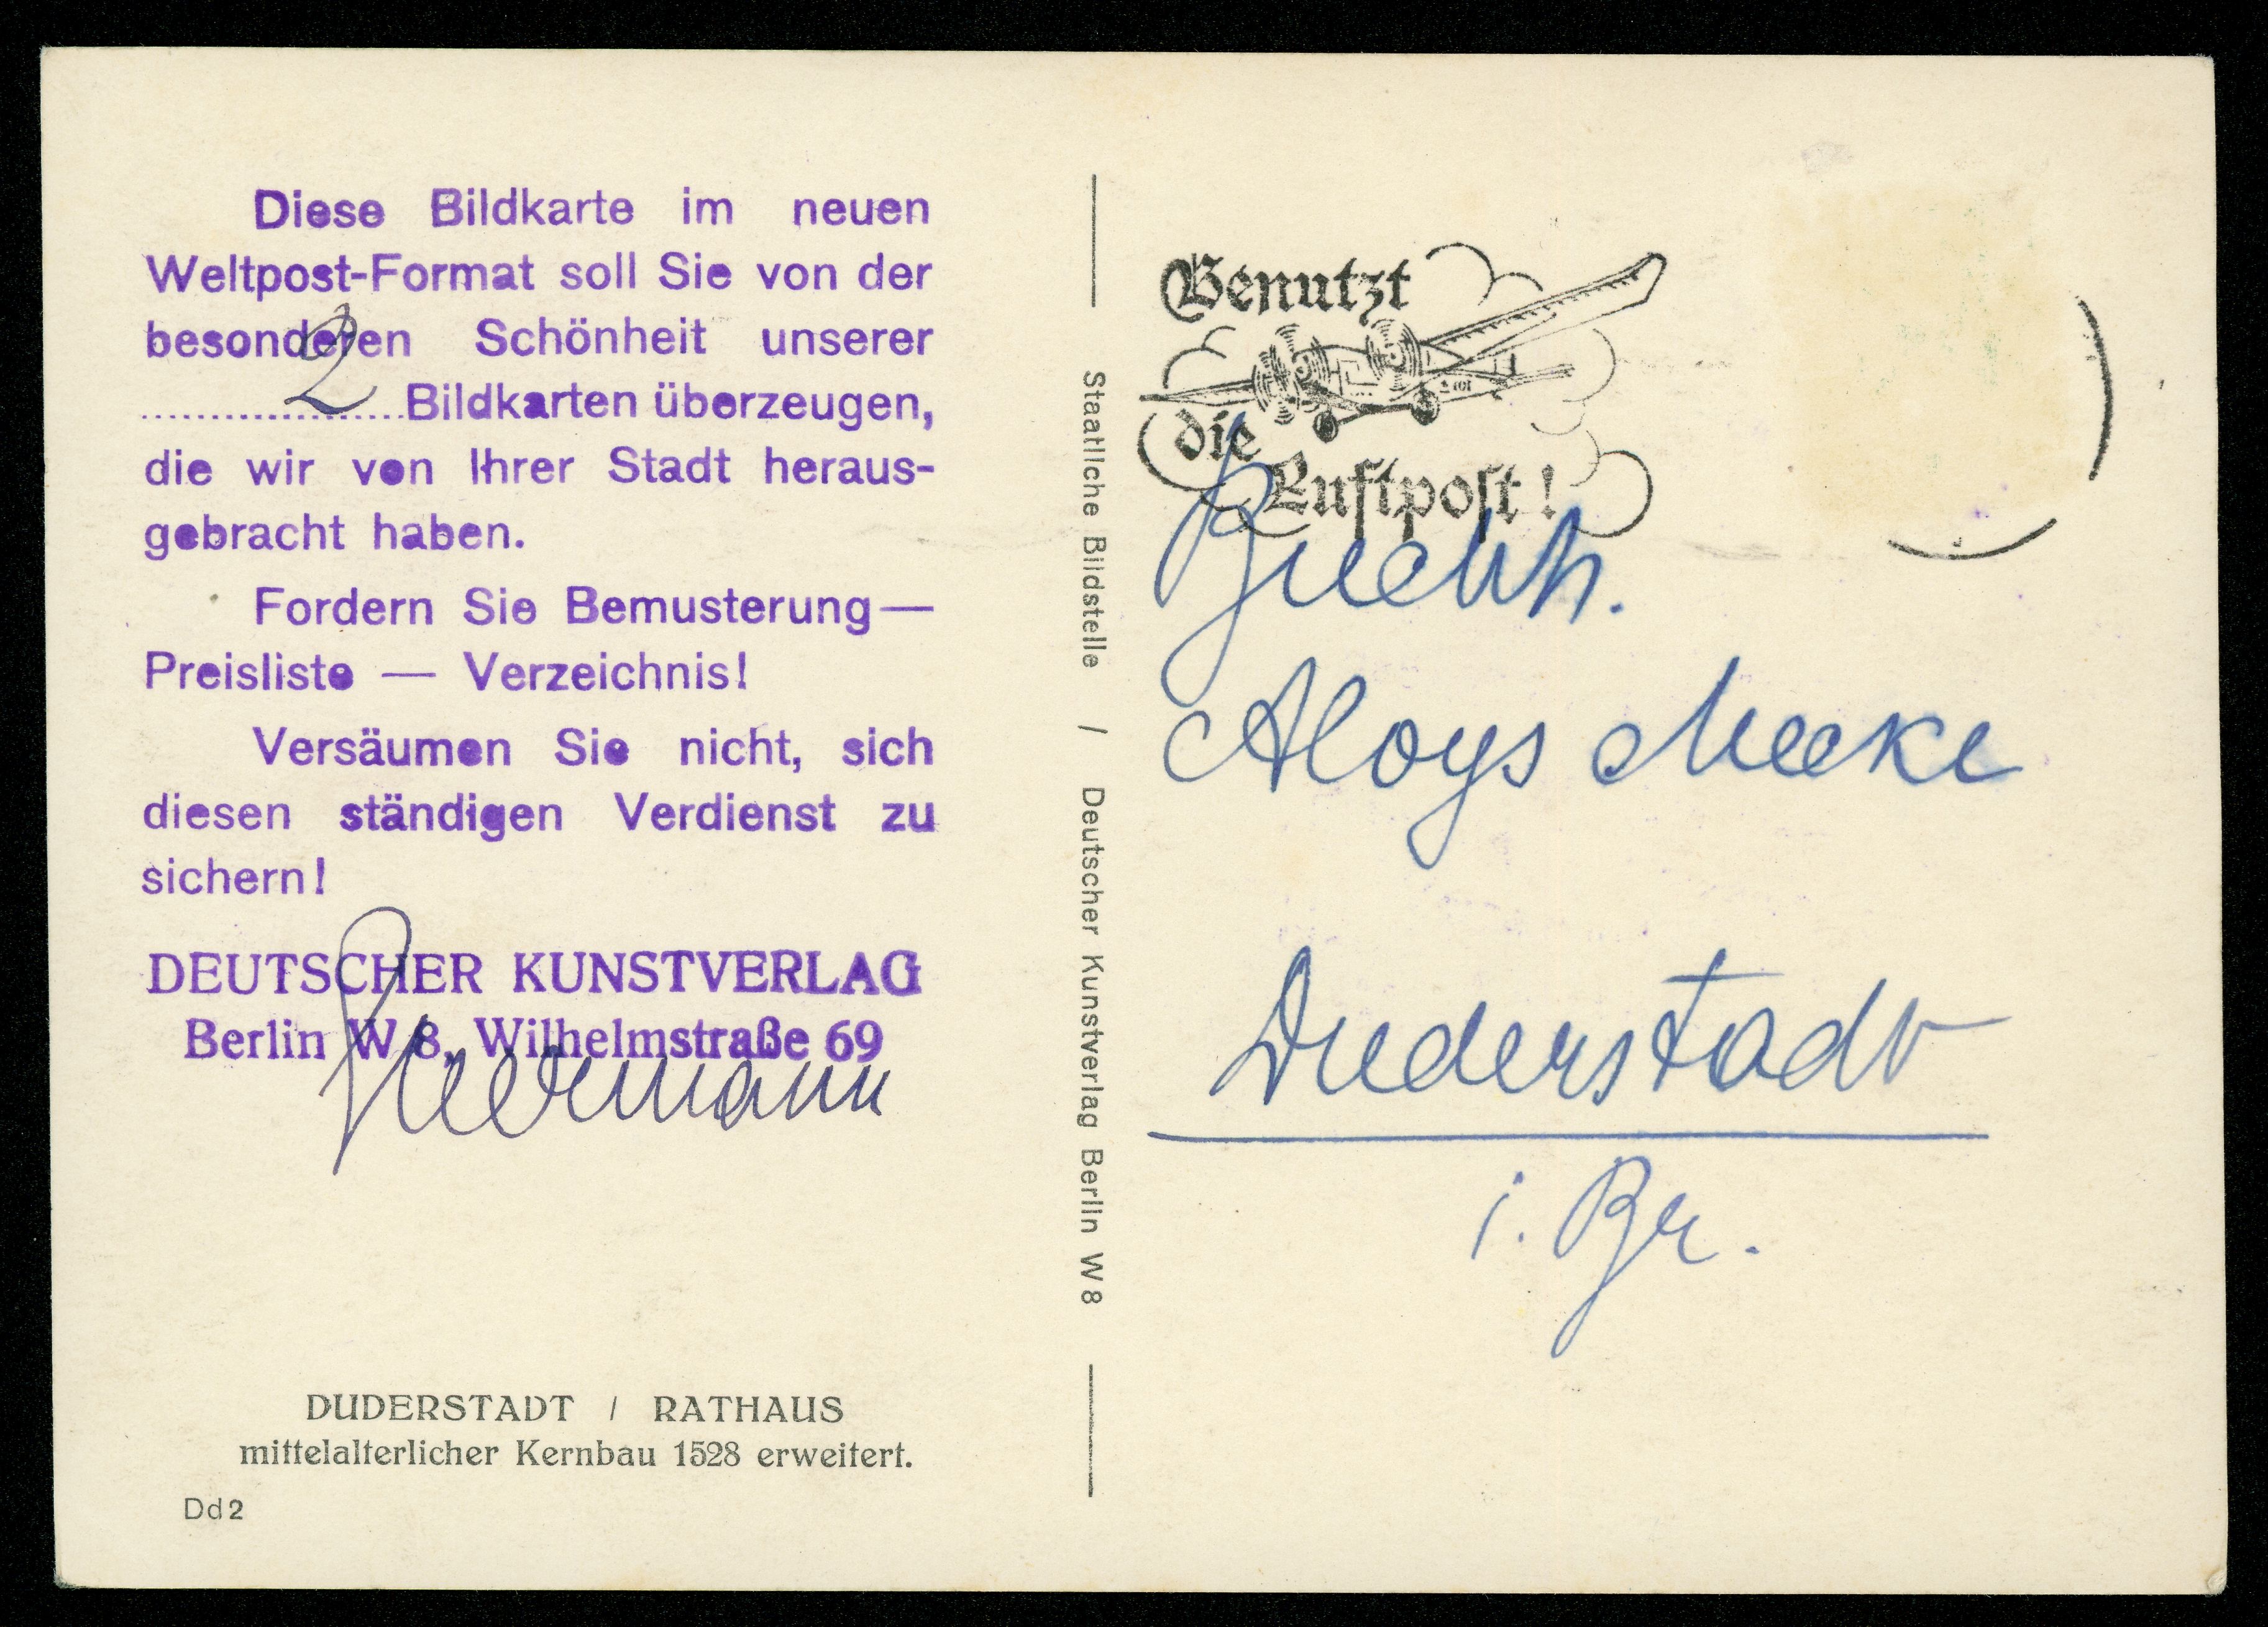 Diese Bildkarte im neuen
Weltpost-Format soll Sie von der
besonderen Schönheit unserer
2 Bildkarten überzeugen,
die wir von Ihrer Stadt heraus-
gebracht haben.
Fordern Sie Bemusterung —
Preisliste — Verzeichnis!
Versäumen Sie nicht, sich
diesen ständigen Verdienst zu
sichern!
DEUTSCHER KUNSTVERLAG
Berlin W 8, Wilhelmstraße 69
DUDERSTADT / RATHAUS
mittelalterlicher Kernbau 1528 erweitert.
Dd 2
Staatliche Bildstelle / Deutscher Kunstverlag Berlin W 8
Benutzt
die
Luftpost!
Buchh.
Aloys Mecke
Duderstadt
i. Br.